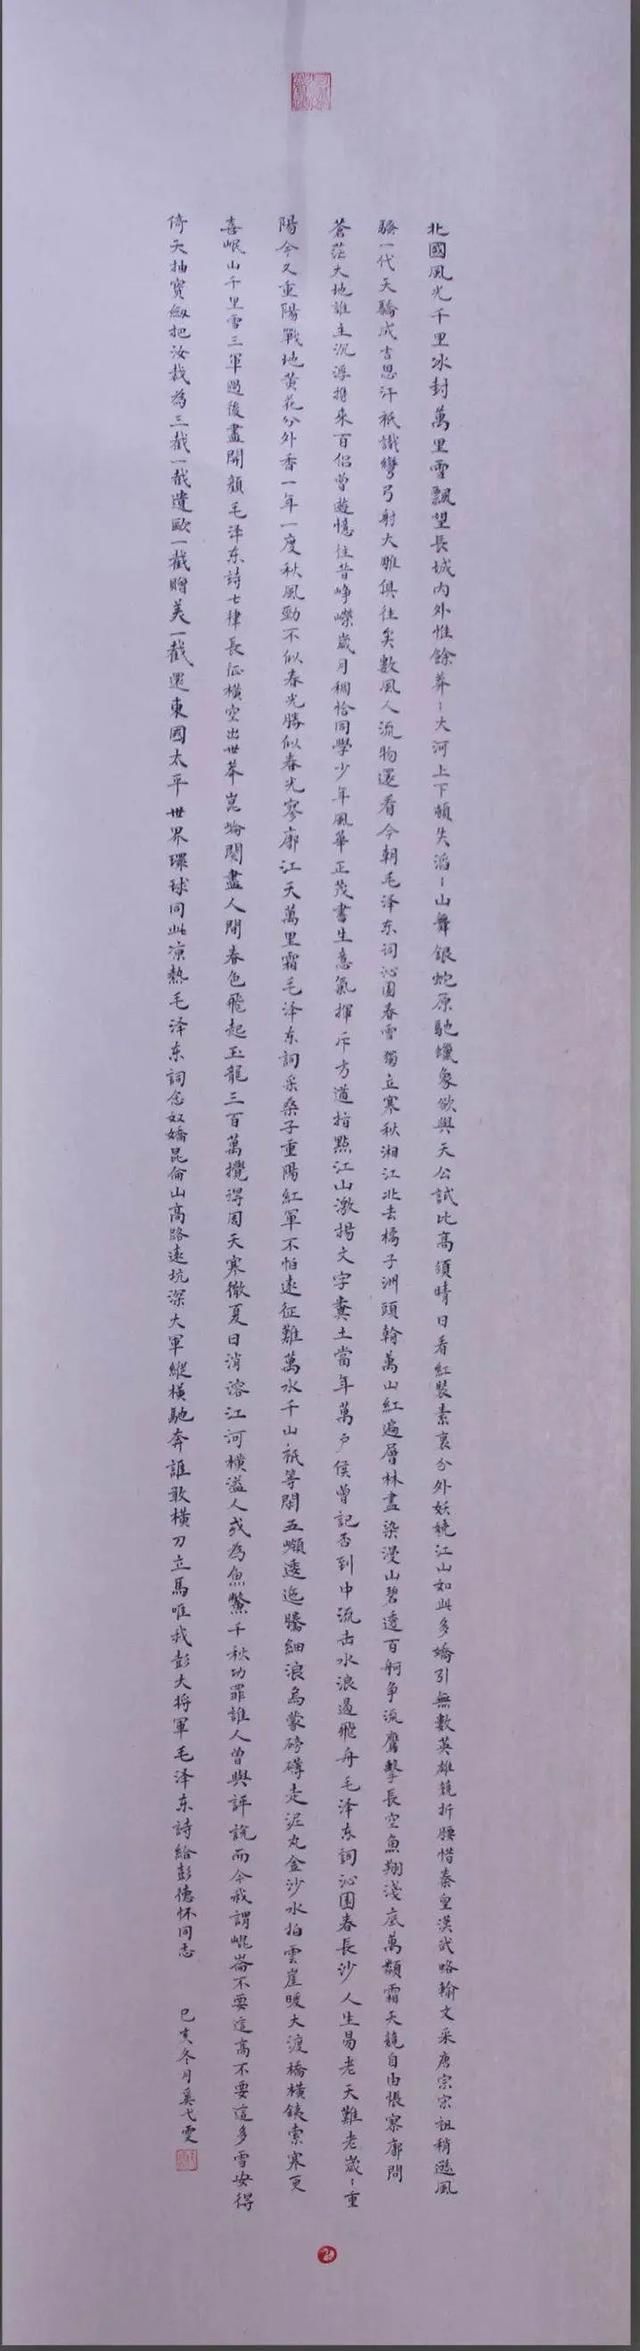 北國風光千里冰封萬里雪飄望長城內外惟餘莽〻大河上下頓失滔〻山舞銀蛇原馳蠟象欲與天公試比高須晴日看紅裝素裹分外妖嬈江山如此多嬌引無數英雄競折腰惜秦皇漢武略輸文采唐宗宋祖稍遜風
騷一代天驕成吉思汗祇識彎弓射大雕俱往矣數風人流物還看今朝毛泽东词沁園春雪獨立寒秋湘江北去橘子洲頭看萬山紅遍層林盡染漫山碧透百舸争流鷹擊長空魚翔淺底萬類霜天競自由悵寥廓問
蒼茫大地誰主沉浮攜來百侶曾遊憶往昔崢嶸歲月稠恰同學少年風華正茂書生意氣揮斥方遒指點江山激揚文字糞土當年萬戶侯曾記否到中流击水浪遏飛舟毛泽东詞沁園春長沙人生易老天難老歲〻重
陽今又重陽戰地黄花分外香一年一度秋風勁不似春光勝似春光寥廓江天萬里霜毛泽东詞采桑子重陽紅軍不怕遠征難萬水千山祇等閒五嶺逶迤騰細浪烏蒙磅礴走泥丸金沙水拍雲崖暖大渡橋橫鐵索寒更
喜岷山千里雪三軍過後盡開顏毛泽东詩七律長征橫空出世莽崑崙閱盡人間春色飛起玉龍三百萬攪得周天寒徹夏日消溶江河橫溢人或為魚鱉千秋功罪誰人曾與評說而今我謂崐崙不要這高不要這多雪安得
倚天抽寶劍把汝裁為三截一截遺歐一截贈美一截還東國太平世界環球同此凉熱毛泽东詞念奴嬌昆侖山高路遠坑深大軍縱橫馳奔誰敢橫刀立馬唯我彭大将軍毛泽东詩給彭德怀同志
己亥冬月奚弋雯